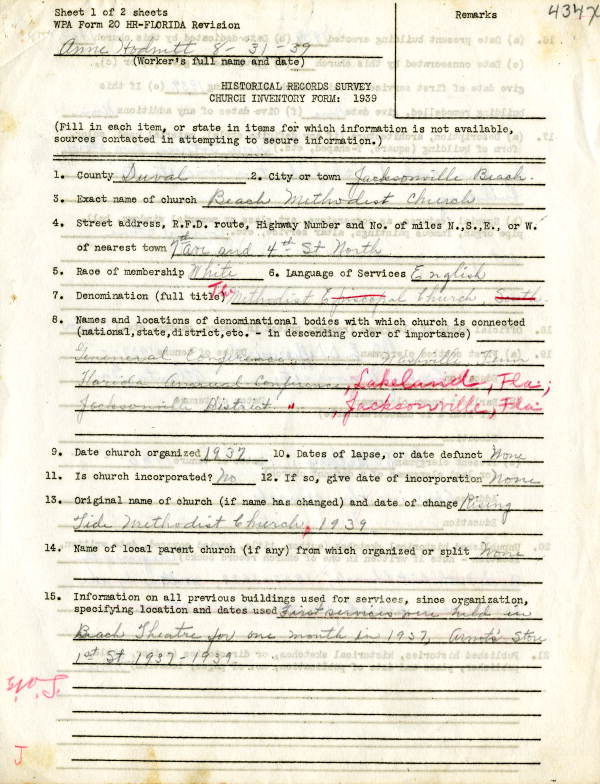 Sheet 1 of 2 sheets
WPA Form 20 HR-FLORIDA Revision
Remarks
4347
8-31-39
(Worker's full name and date)
HISTORICAL RECORDS SURVEY
CHURCH INVENTORY FORM: 1939
(Fill in each item, or state in items for which information is not available,
sources contacted in attempting to secure information.)
1. County Duval .2. City or town Jacksonville Beach.
3. Exact name of church Beach Methodist Church
4. Street address, R.F.D. route, Highway Number and No. of miles N.,S.,E., or W.
of nearest town 7th Ave and 4th St North
5. Race of membership White 6. Language of Services English
7. Denomination (full title) The Methodist Episcopal Church, South
8. Names and locations of denominational bodies with which church is connected
(national,state,district,etc. - in descending order of importance)
General Nashville Tenn
Florida Annual Conference, Lakeland, Fla;
Jacksonville District " , Jacksonville, Fla
9. Date church organized 1937 10. Dates of lapse, or date defunct None
11. Is church incorporated? No 12. If so, give date of incorporation None
13. Original name of church (if name has changed) and date of change Rising
Tide Methodist Church, 1939
14. Name of local parent church (if any) from which organized or split None
15. Information on all previous buildings used for services, since organization,
specifying location and dates used First services were held in
Beach Theatre for one month in 1937, Store
1st St 1937-1939.
J